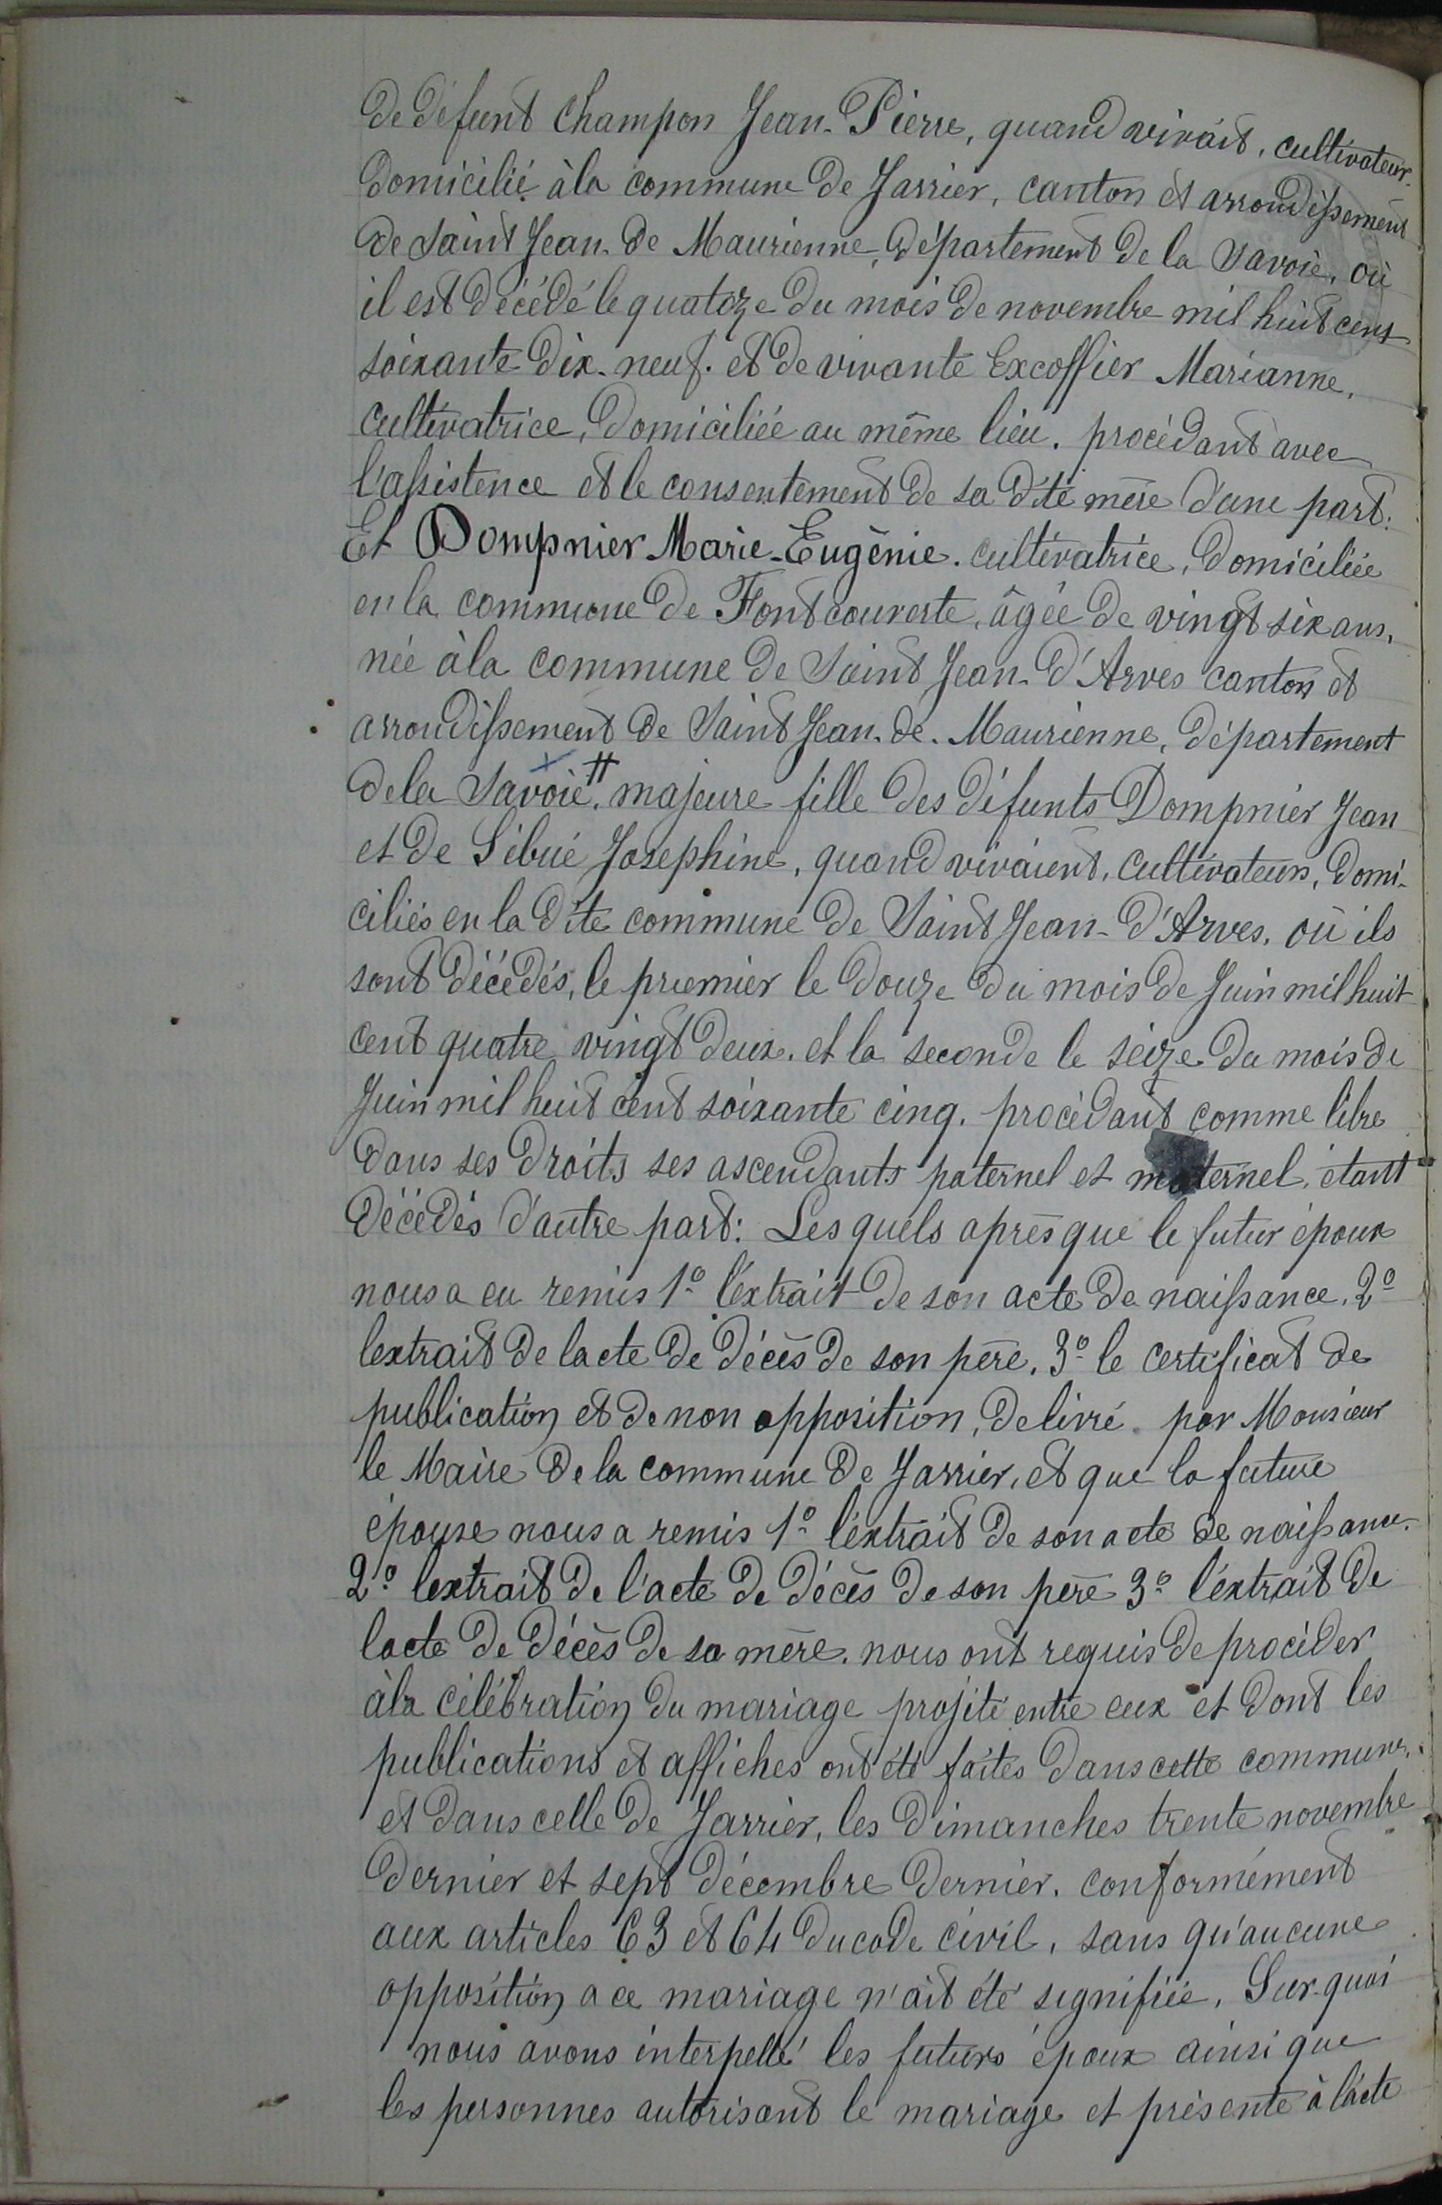 de défunt Champon Jean-Pierre, quand vivait, cultivateur.
domicilié à la commune de Jarrier, canton et arrondissement
de Saint Jean-de Maurienne, département de la Savoie, où
il est décédé le quatoze du mois de novembre mil huit cent
soixante dix-neuf. et de vivante Excoffier Marianne,
cultivatrice, domiciliée au même lieu. procédant avec
l'assistence et le consentement de sa dite mère d'une part:
Et Dompnier Marie-Eugènie. cultivatrice, domiciliée
en la commune de Fontcouverte, âgée de vingt six ans,
née à la commune de Saint Jean-d'Arves canton et
arrondissement de Saint Jean-de-Maurienne, département
de la Savoie, # majeure fille des défunts Dompnier Jean
et de Sibué Josephine, quand vivaient, cultivateurs, domi-
ciliés en la dite commune de Saint Jean-d'Arves, où ils
sont décédés, le premier le douze du mois de Juin mil huit
cent quatre vingt deux. et la seconde le seize du mois de
Juin mil huit cent soixante cinq. procédant comme libre
dans ses droits ses ascendants paternel et maternel, étant
décédés d'autre part: Lesquels après que le futur époux
nous a eu remis 1º l'extrait de son acte de naissance, 2º
lextrait de lacte de décès de son père, 3º le certificat de
publication et de non opposition, delivré par Monsieur
le Maire de la commune de Jarrier, et que la future
épouse nous a remis 1º l'extrait de son acte de naissance.
2º lextrait de l'acte de décès de son père 3º l'extrait de
lacte de décès de sa mère. nous ont requis de procéder
à la célébration du mariage projeté entre eux et dont les
publications et affiches ont été faites dans cette commune,
et dans celle de Jarrier, les dimanches trente novembre
dernier et sept décembre dernier. conformément
aux articles 63 et 64 du code civil, sans qu'aucune
opposition a ce mariage n'ait été signifiée, Sur-quoi
nous avons interpellé les futurs époux ainsi que
les personnes autorisant le mariage et présente à l'acte